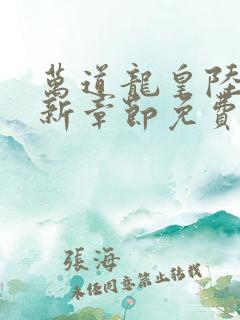 萬道龍皇陸
新章節免費
張海
未經同意禁止轉載